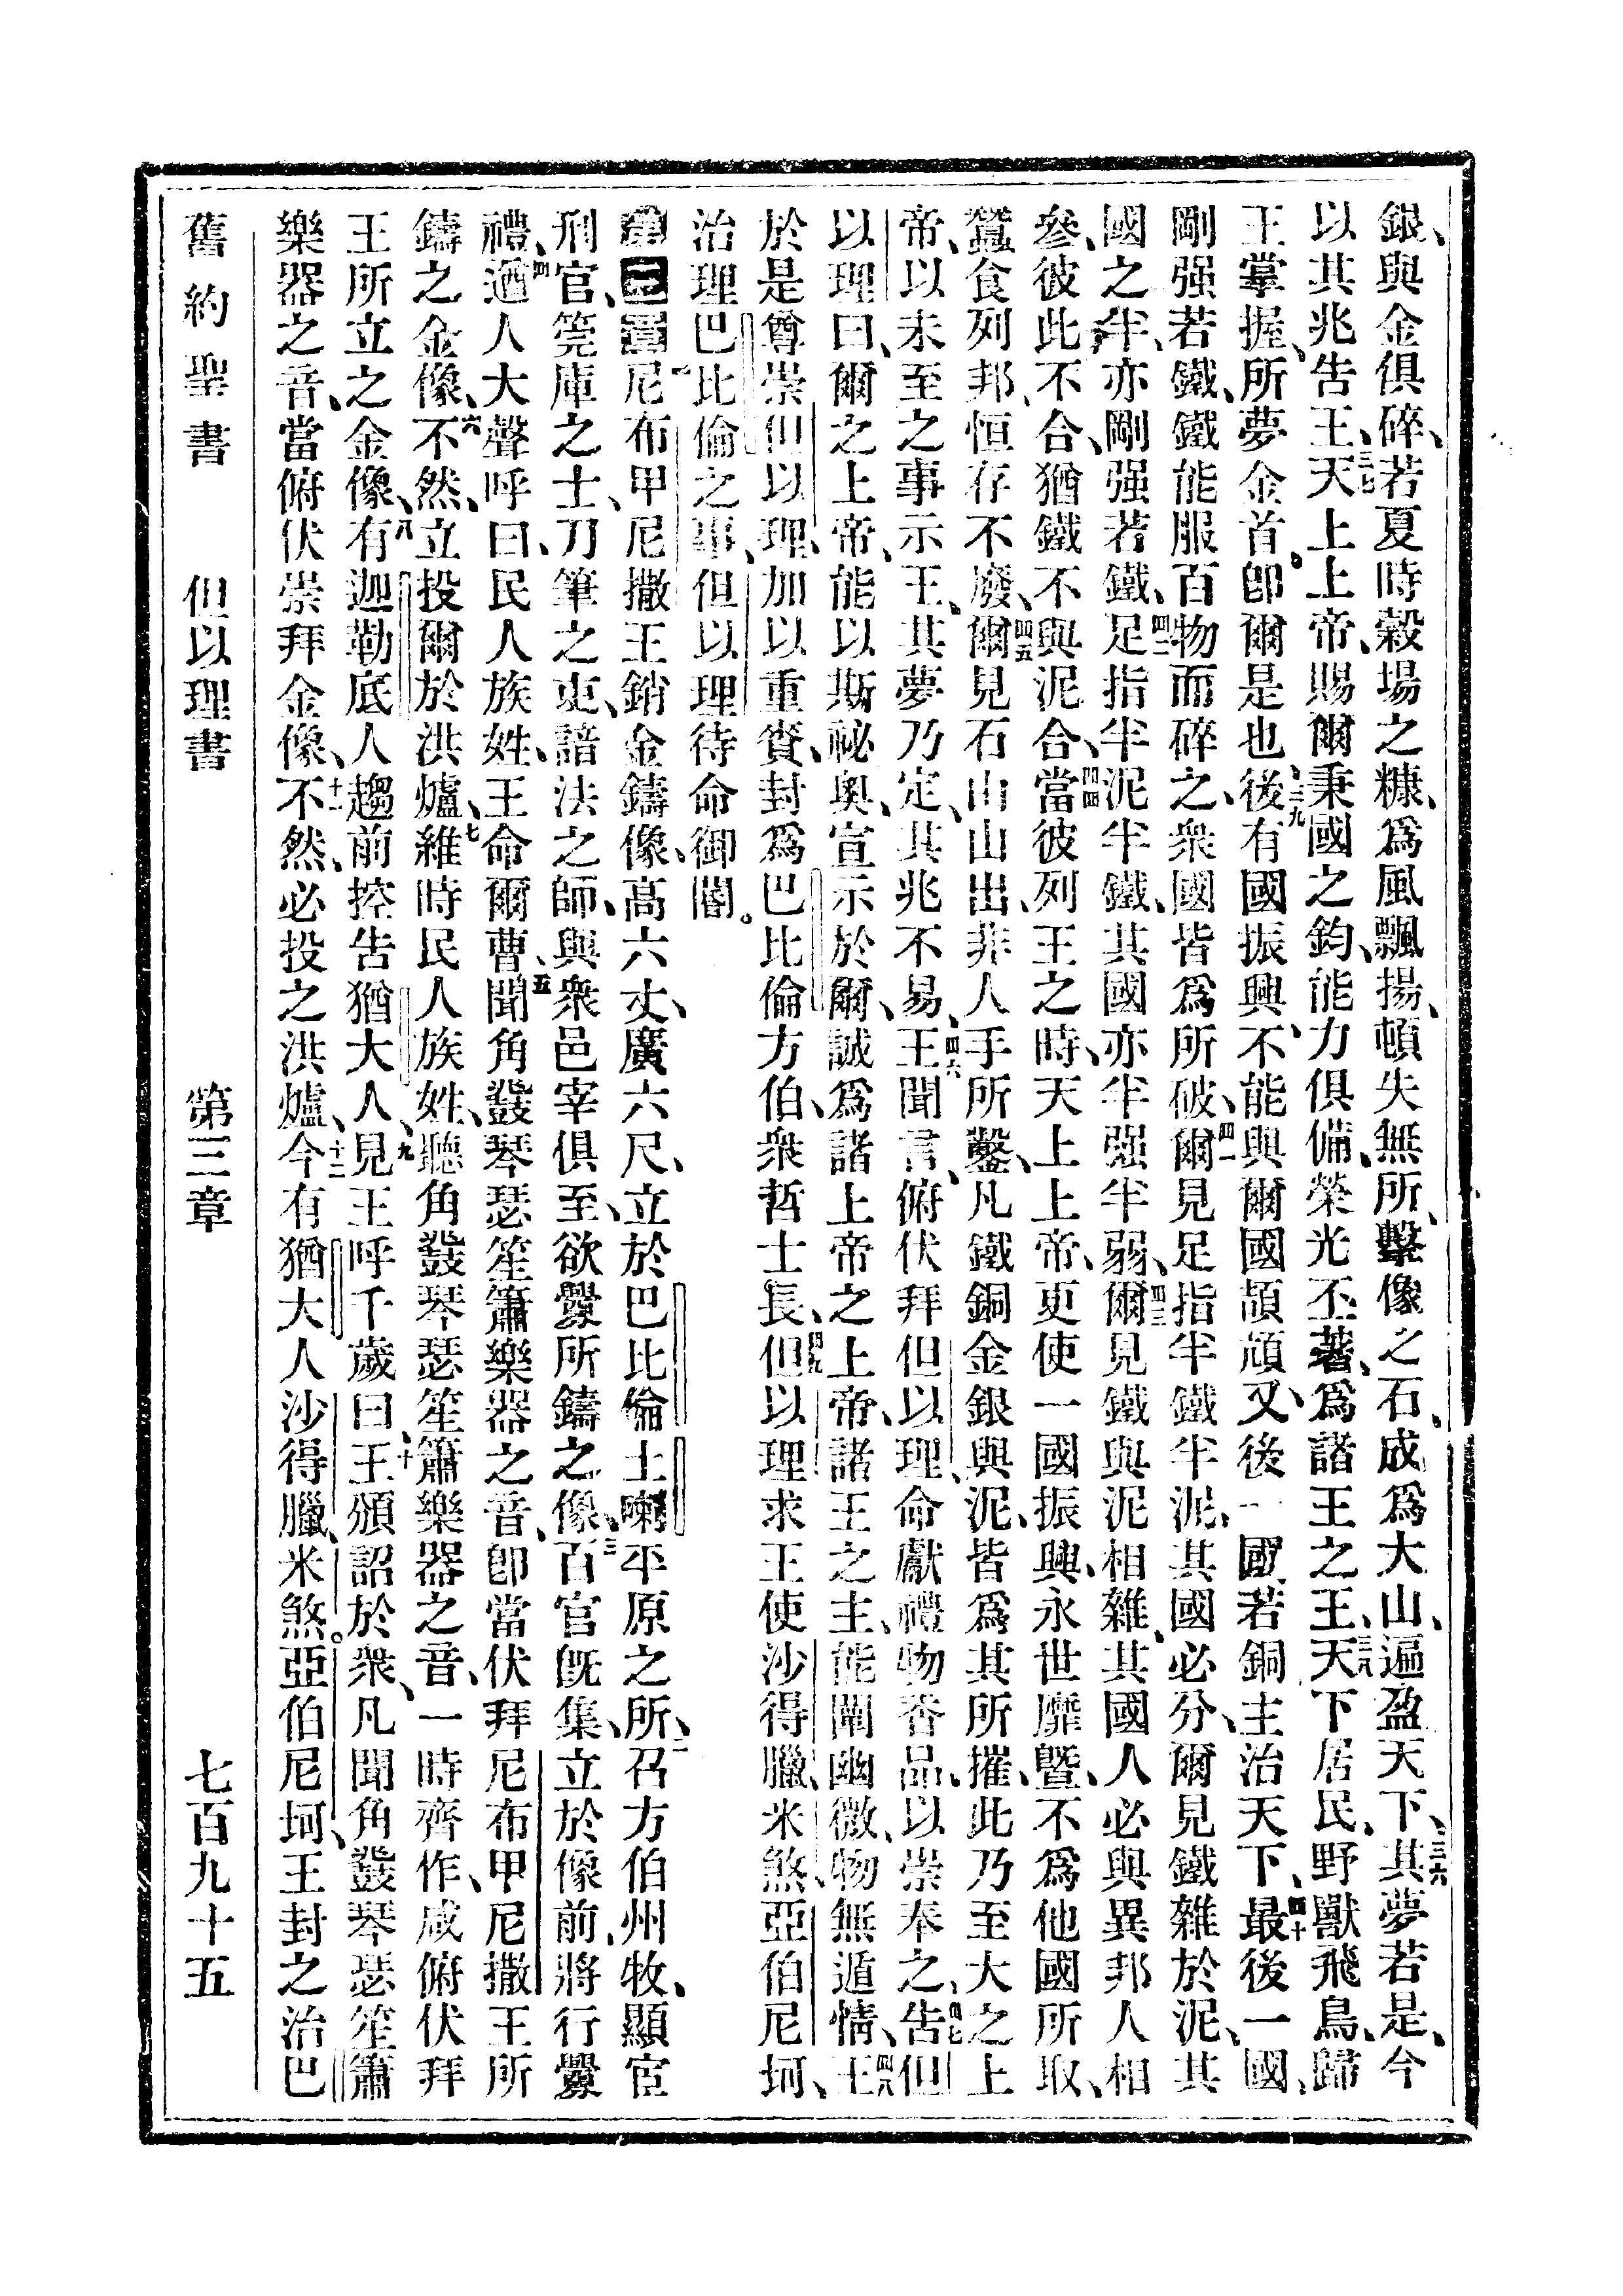 銀、與金俱碎、若夏時穀場之糠、爲風飄揚、頓失無所、擊像之石、成爲大山、遍盈天下、三六其夢若是、今
以其兆告王、三七天上上帝、賜爾秉國之鈞、能力俱備、榮光丕著、爲諸王之王、三八天下居民、野獸飛鳥、歸
王掌握、所夢金首、卽爾是也、三九後有國振興、不能與爾國頡頏、又後一國、若銅主治天下、四十最後一國、
剛强若鐵、鐵能服百物而碎之、衆國皆爲所破、四一爾見足指半鐵半泥、其國必分、爾見鐵雜於泥、其
國之半、亦剛强若鐵、四二足指半泥半鐵、其國亦半强半弱、四三爾見鐵與泥相雜、其國人必與異邦人相
參、彼此不合、猶鐵不與泥合、四四當彼列王之時、天上上帝、更使一國振興、永世靡曁、不爲他國所取、
蠶食列邦、恒存不廢、四五爾見石山山出、非人手所鑿、凡鐵銅金銀與泥、皆爲其所摧、此乃至大之上
帝、以未至之事示王、其夢乃定、其兆不易、四六王聞言、俯伏拜但以理、命獻禮物香品、以崇奉之、四七告但
以理曰、爾之上帝、能以斯祕奧、宣示於爾、誠爲諸上帝之上帝、諸王之主、能闡幽微、物無遁情、四八王
於是尊崇但以理、加以重賚、封爲巴比倫方伯、衆哲士長、四九但以理求王使沙得臘、米煞、亞伯尼坷、
治理巴比倫之事、但以理待命御闇。
第三章一尼布甲尼撒王銷金鑄像、高六丈、廣六尺、立於巴比倫土喇平原之所、二召方伯州牧、顯宦
刑官、筦庫之士、刀筆之吏、諳法之師、與衆邑宰俱至、欲釁所鑄之像、三百官旣集、立於像前、將行釁
禮、四遒人大聲呼曰、民人族姓、王命爾曹、五聞角鼗琴瑟笙簫樂器之音、卽當伏拜尼布甲尼撒王所
鑄之金像、六不然、立投爾於洪爐、七維時民人族姓、聽角鼗琴瑟笙簫樂器之音、一時齊作、咸俯伏拜
王所立之金像、八有迦勒底人趨前控告猶大人、九見王呼千歲曰、十王頒詔於衆、凡聞角鼗琴瑟笙簫
樂器之音、當俯伏崇拜金像、十一不然、必投之洪爐、十二今有猶大人沙得臘、米煞。亞伯尼坷、王封之治巴
舊約聖書 但以理書 第三章 七百九十五